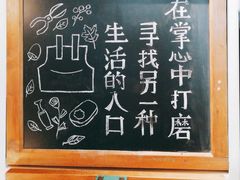 在掌心中打磨
寻找另一种
生活的人口